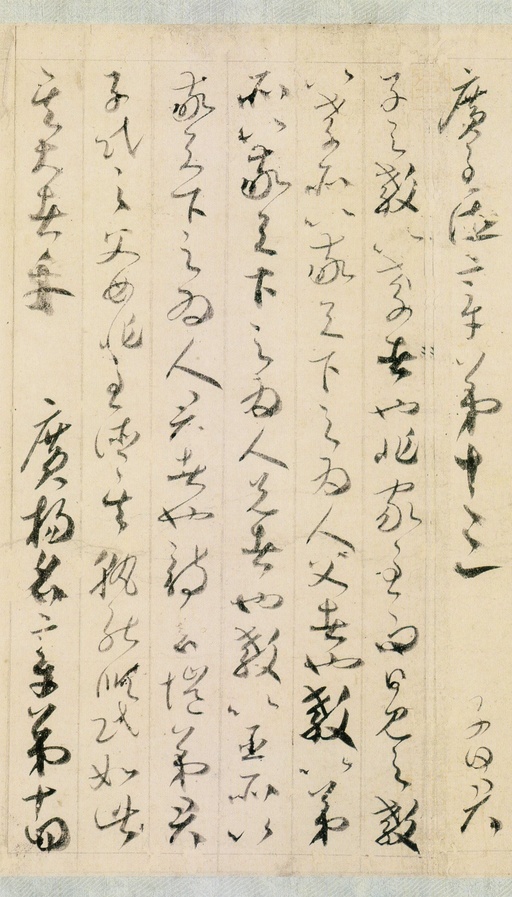 廣至德章第十三 子曰君
子之教以孝者也非家至而日見之教
以孝所以敬天下之為人父者也教以弟
所以敬天下之為人兄者也教以臣所以
敬天下之為人君者也詩云愷弟君
子民之父母非至德其孰能順民如此
其大者乎 廣揚名章第十四